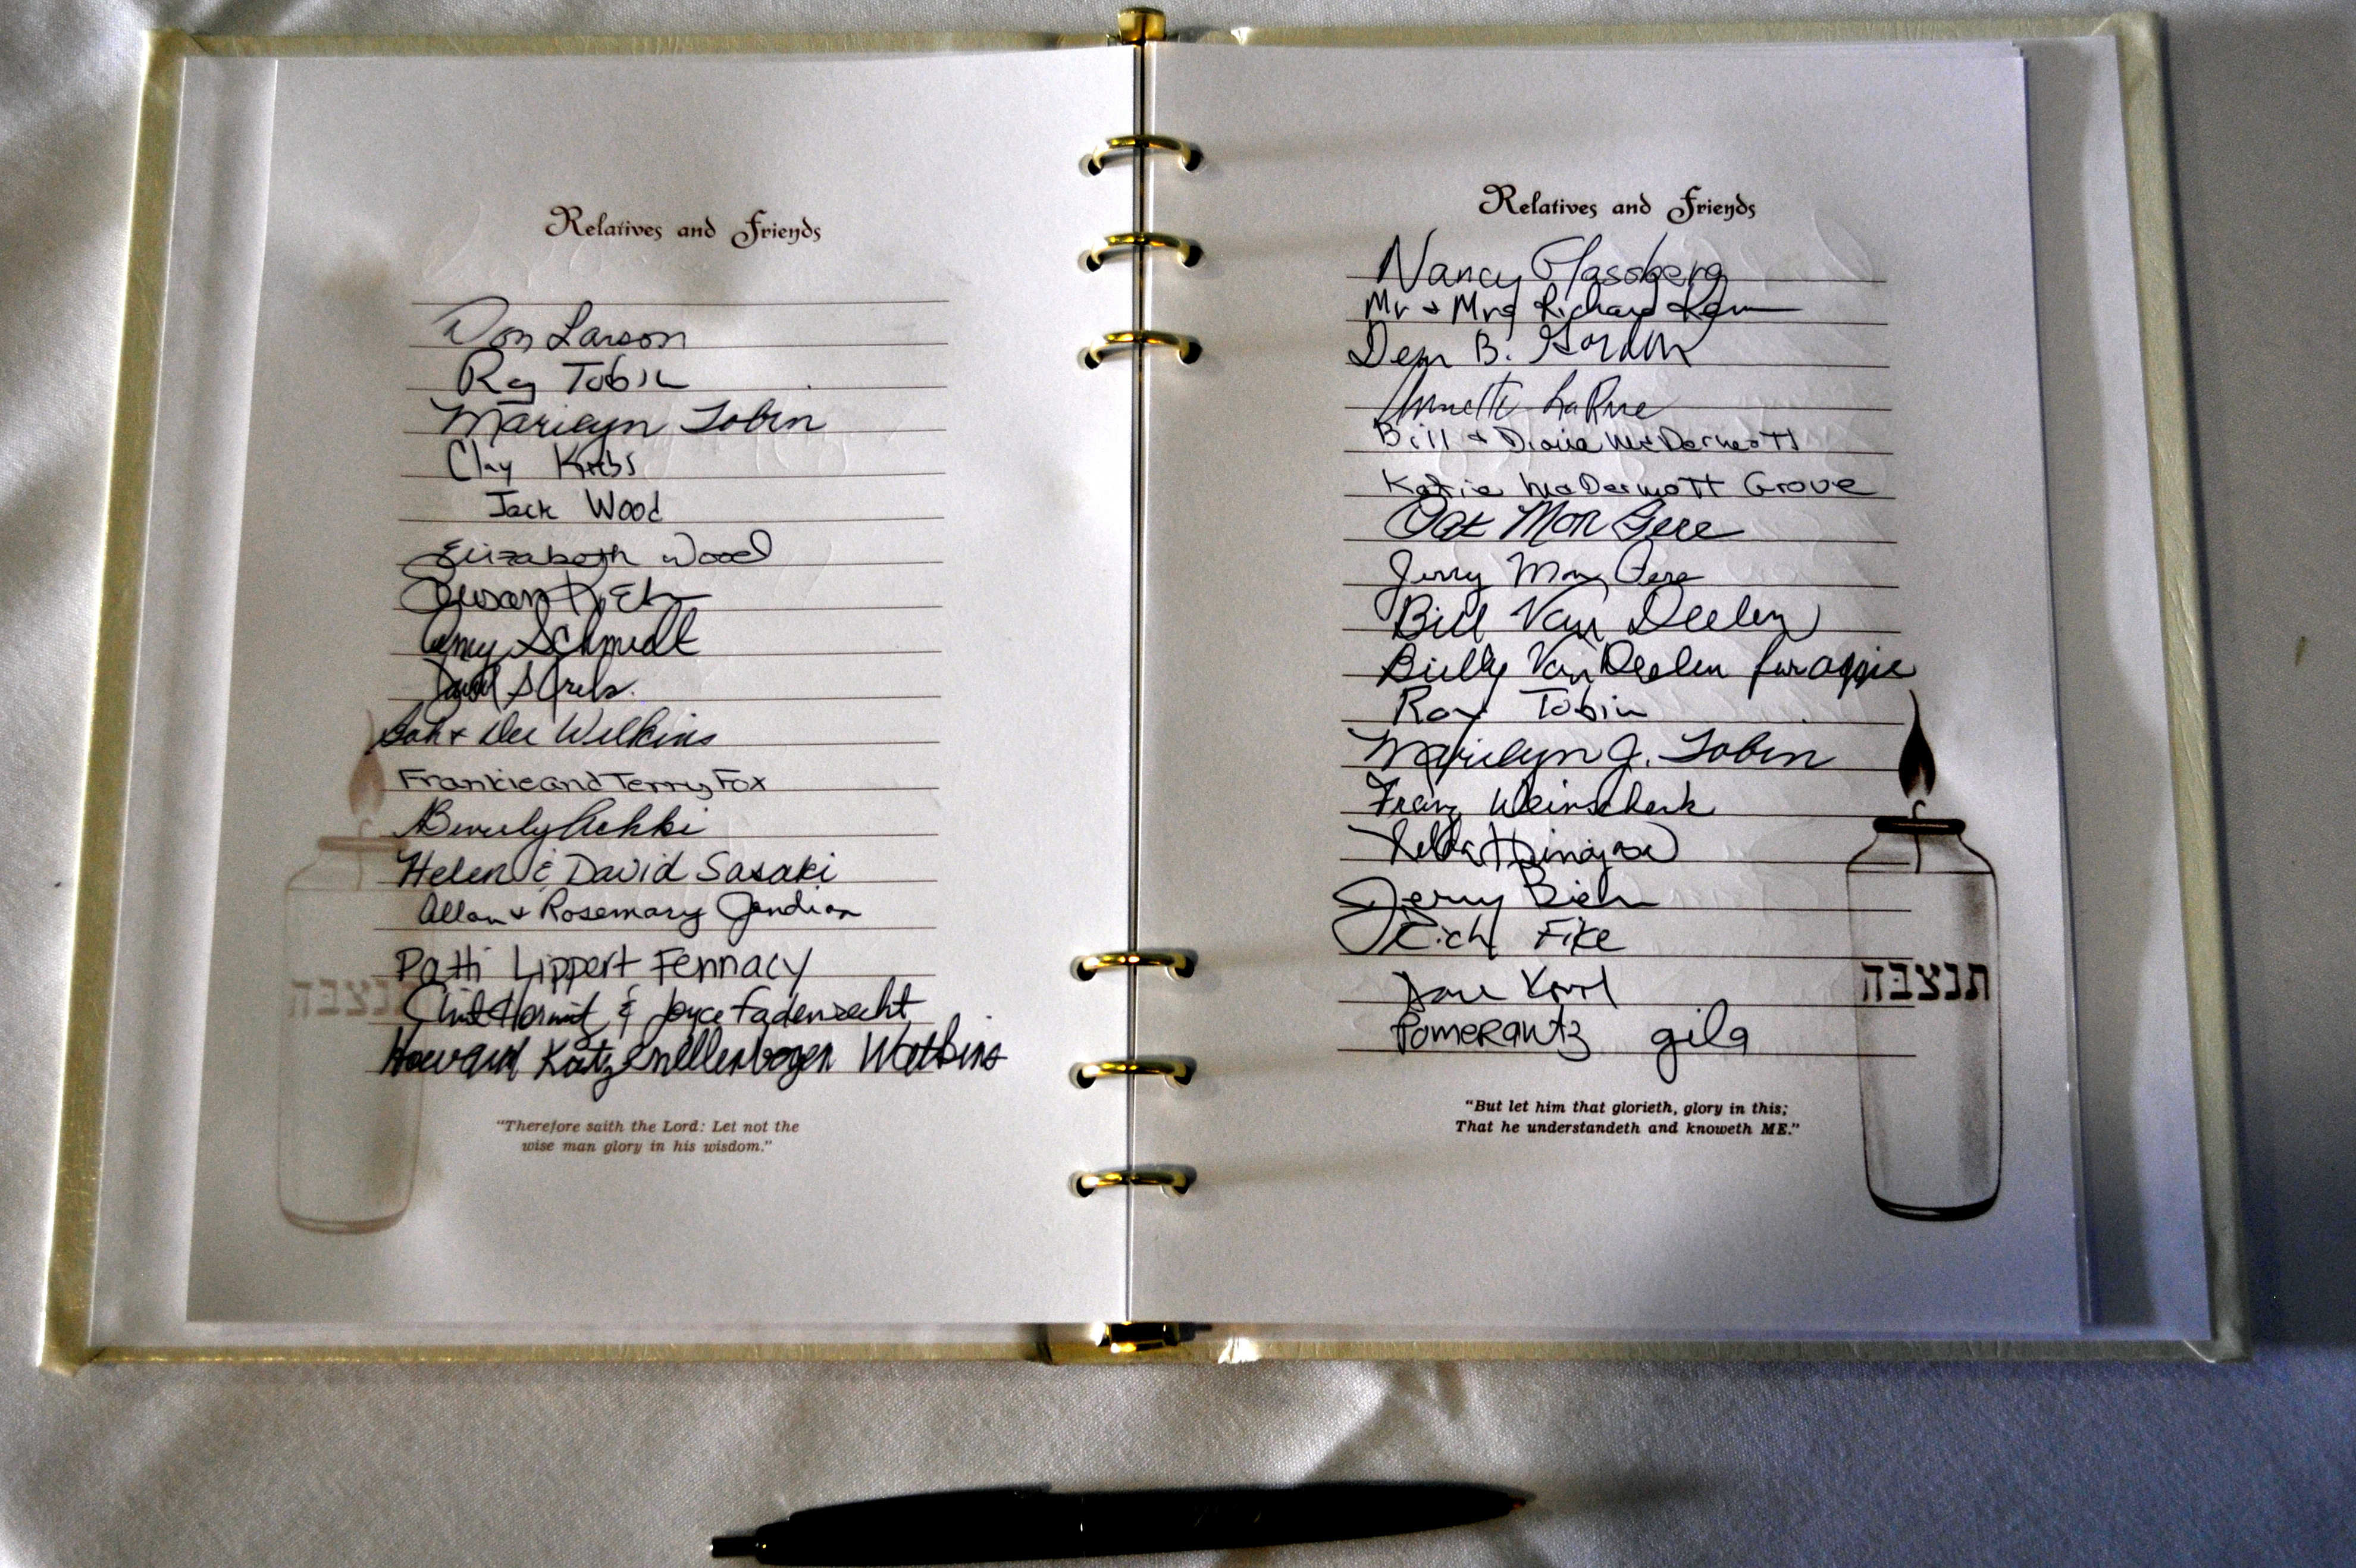 Relatives and Friends
Don Larson
Ray Tobin
Marilyn Tobin
Clay Krebs
Jack Wood
Elizabeth Wood
Susan
Amy Schmidt
David S
Bob + Dee Wilkins
Frankie and Terry Fox
Beverly
Helen & David Sasaki
Allan + Rosemary Jendian
Patti Lippert Fennacy
& Joyce Fadenrecht
Howard Katz Ellenbogen Watkins
"Therefore saith the Lord: Let not the
wise man glory in his wisdom."
תנצבה
Relatives and Friends
Nancy Glassberg
Mr + Mrs Richard
B. Gordon
Annette LaRue
Bill + Diane McDermott
Katie McDermott Grove
Pat Mon Pere
Jerry Mon Pere
Bill Van Deelen
Billy Van Deelen for aggie
Ray Tobin
Marilyn J. Tobin
Franz Weinschenk
Hinojosa
Jerry
Rich Fike
Pomerantz gila
"But let him that glorieth, glory in this;
That he understandeth and knoweth ME."
תנצבה